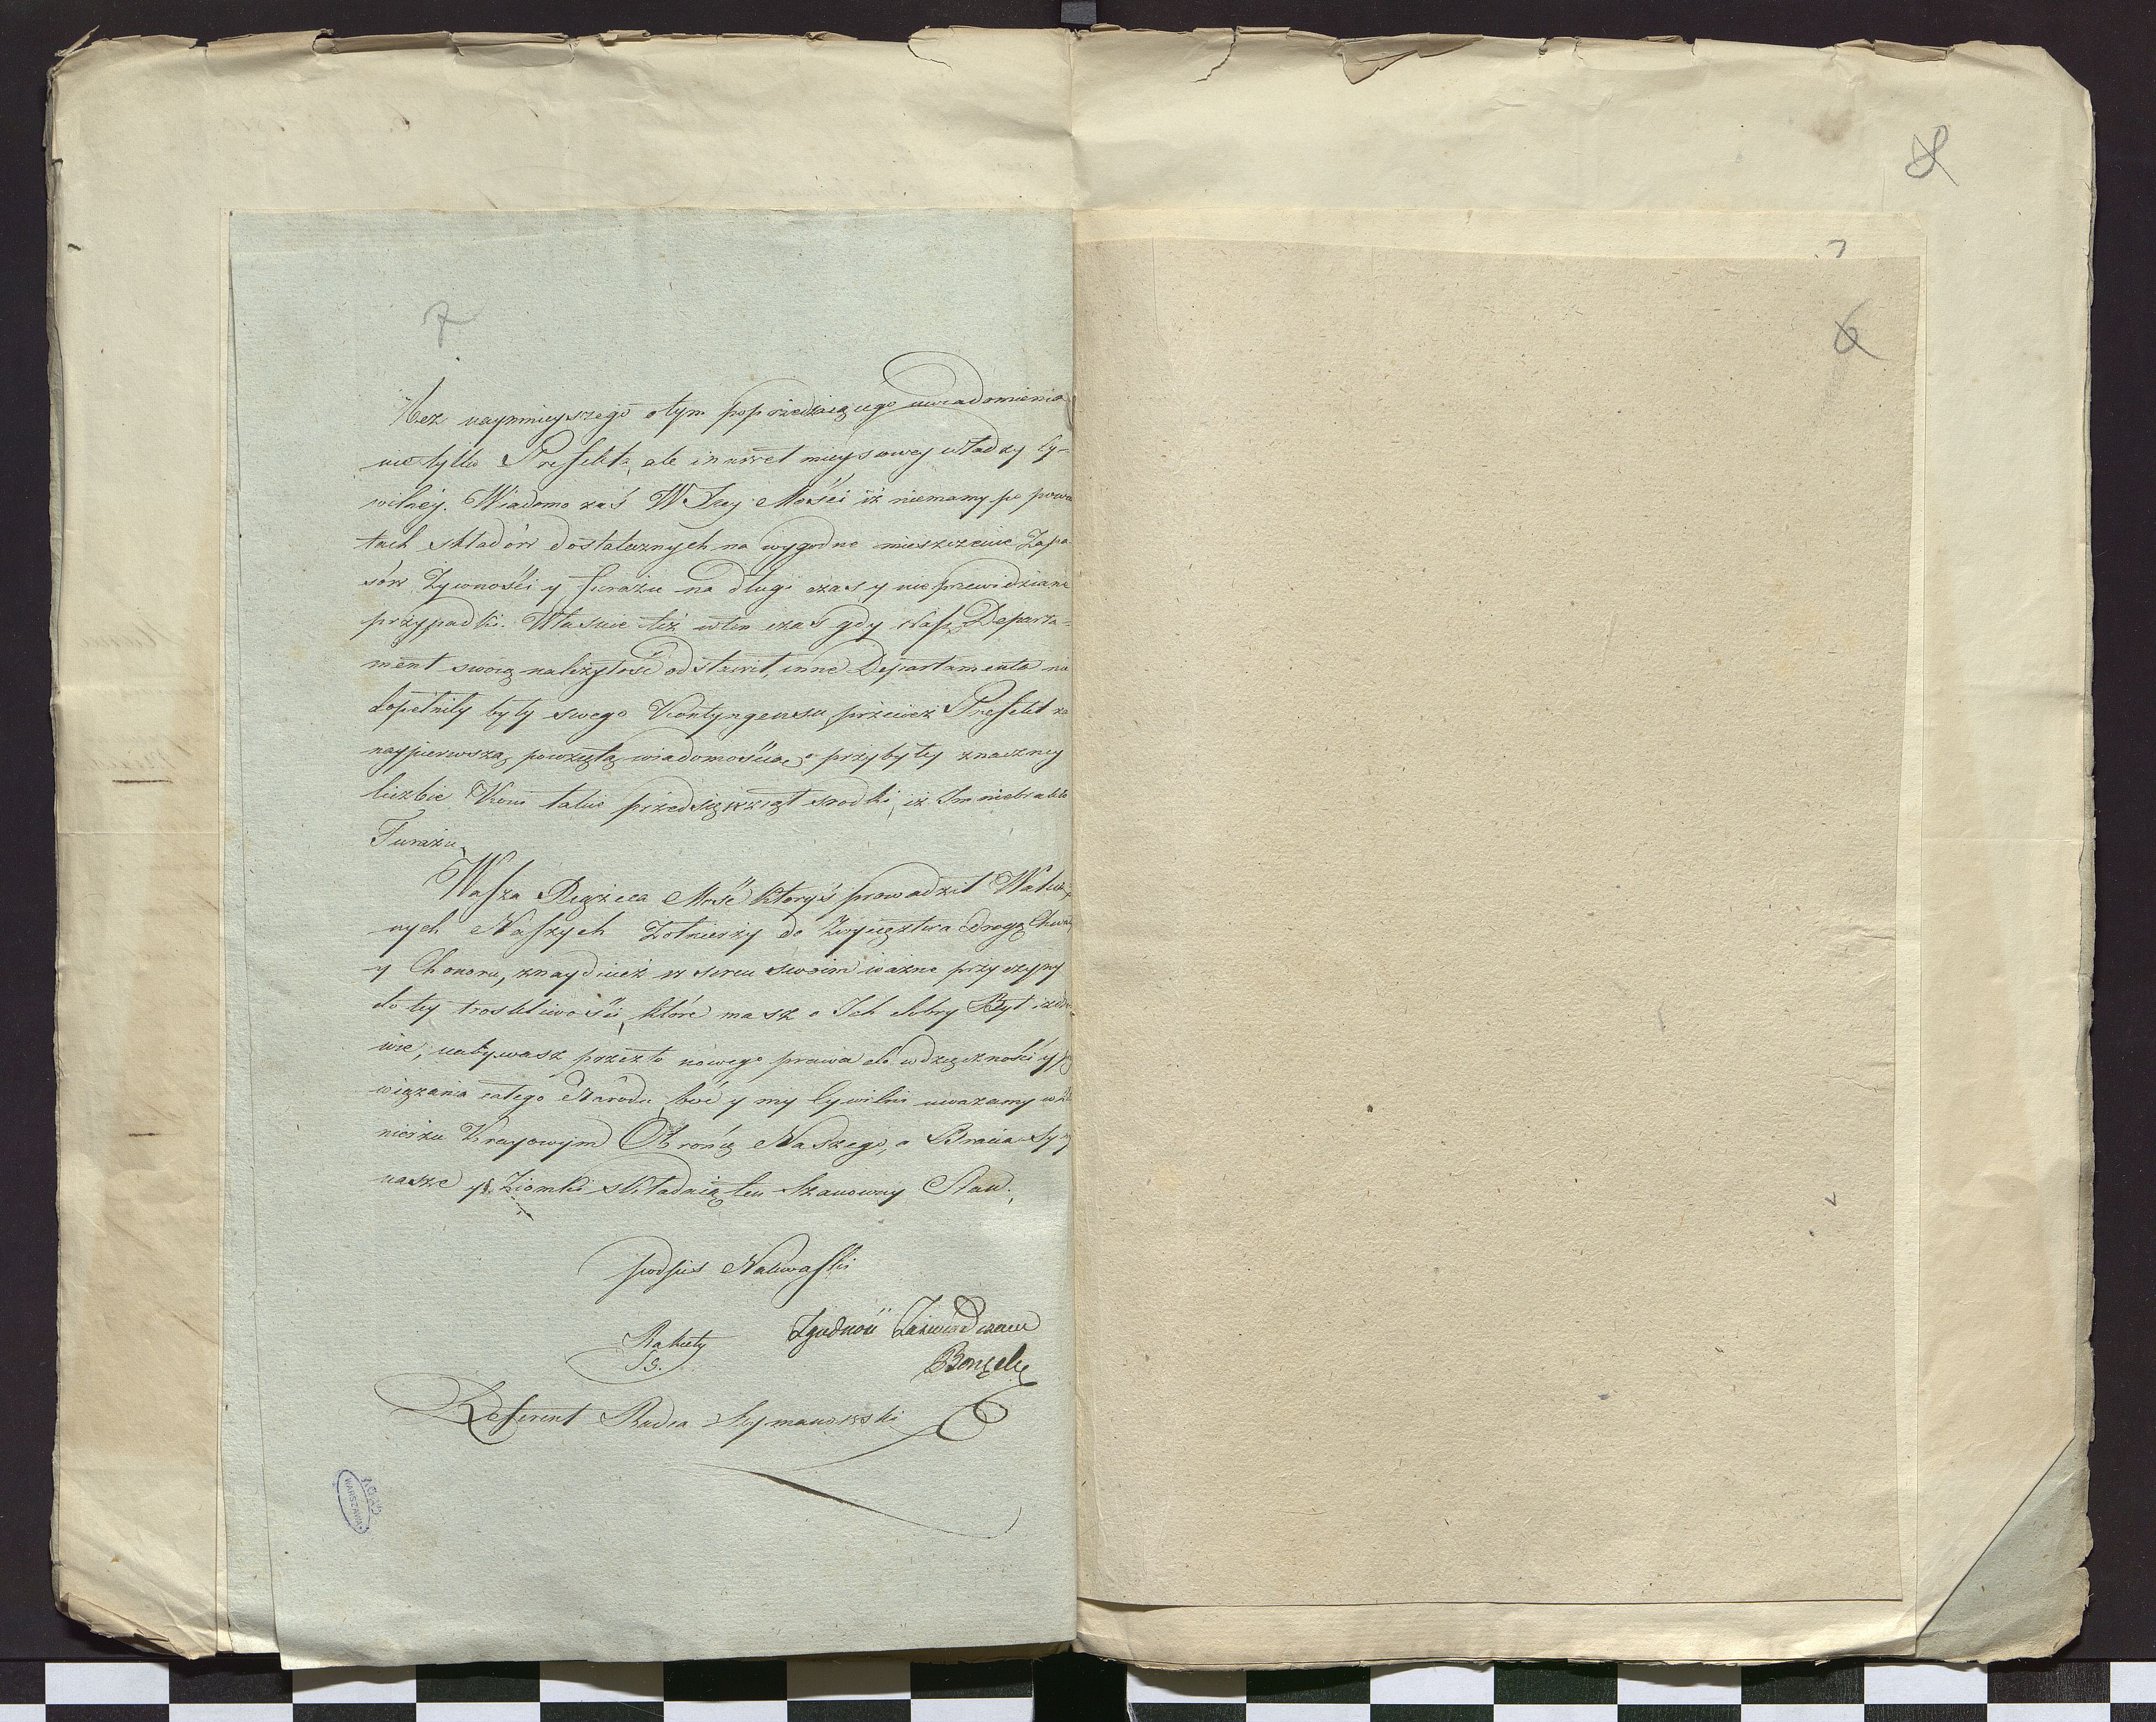 8
7
7
6
Bez naymnieyszego o tym poprzedzaiącego uwiadomienia
nietylko Prefekta, ale i nawet mieyscowey władzy Cy-
wilney. Wiadomo zaś W. Xcey Mości iż niemamy po powia
tach składów dostatecznych na wygodne mieszczenie Zapa
sów Żywności y furażu na długi czas y nieprzewidziane
przypadki. Właśnie też wten czas gdy nasz Departa-
ment swoią należytość odstawił, inne Departamenta nie
dopełniły były swego Kontyngensu, przecież Prefekt za
naypierwszą powziętą wiadomością o przybyłey znaczney
liczbie Koni takie przedsięwziął srodki, iż Im niebrakło
Furażu.
Wasza Xiążęca Mość któryś prowadził Walecz
nych Naszych Żołnierzy do Zwycięztwa drogą Chwały
y Honoru, znayduiesz w sercu swoim ważne przyczyny
do tey troskliwości, które masz o Ich dobry Byt i zdro
wie, nabywasz przezto nowego prawa do wdzięczności y przy
wiązania całego Narodu, bo y my Cywilni uważamy w żoł
nierzu Krajowym Obrońcę Naszego, a Bracia Syny
nasze y Ziomki składaią ten Szanowny Stan.
podpis Nakwaski
Rakiety
Zgodność Zaświadczam
Sg.
Referent Radca Szymanowski
WARSZAWA